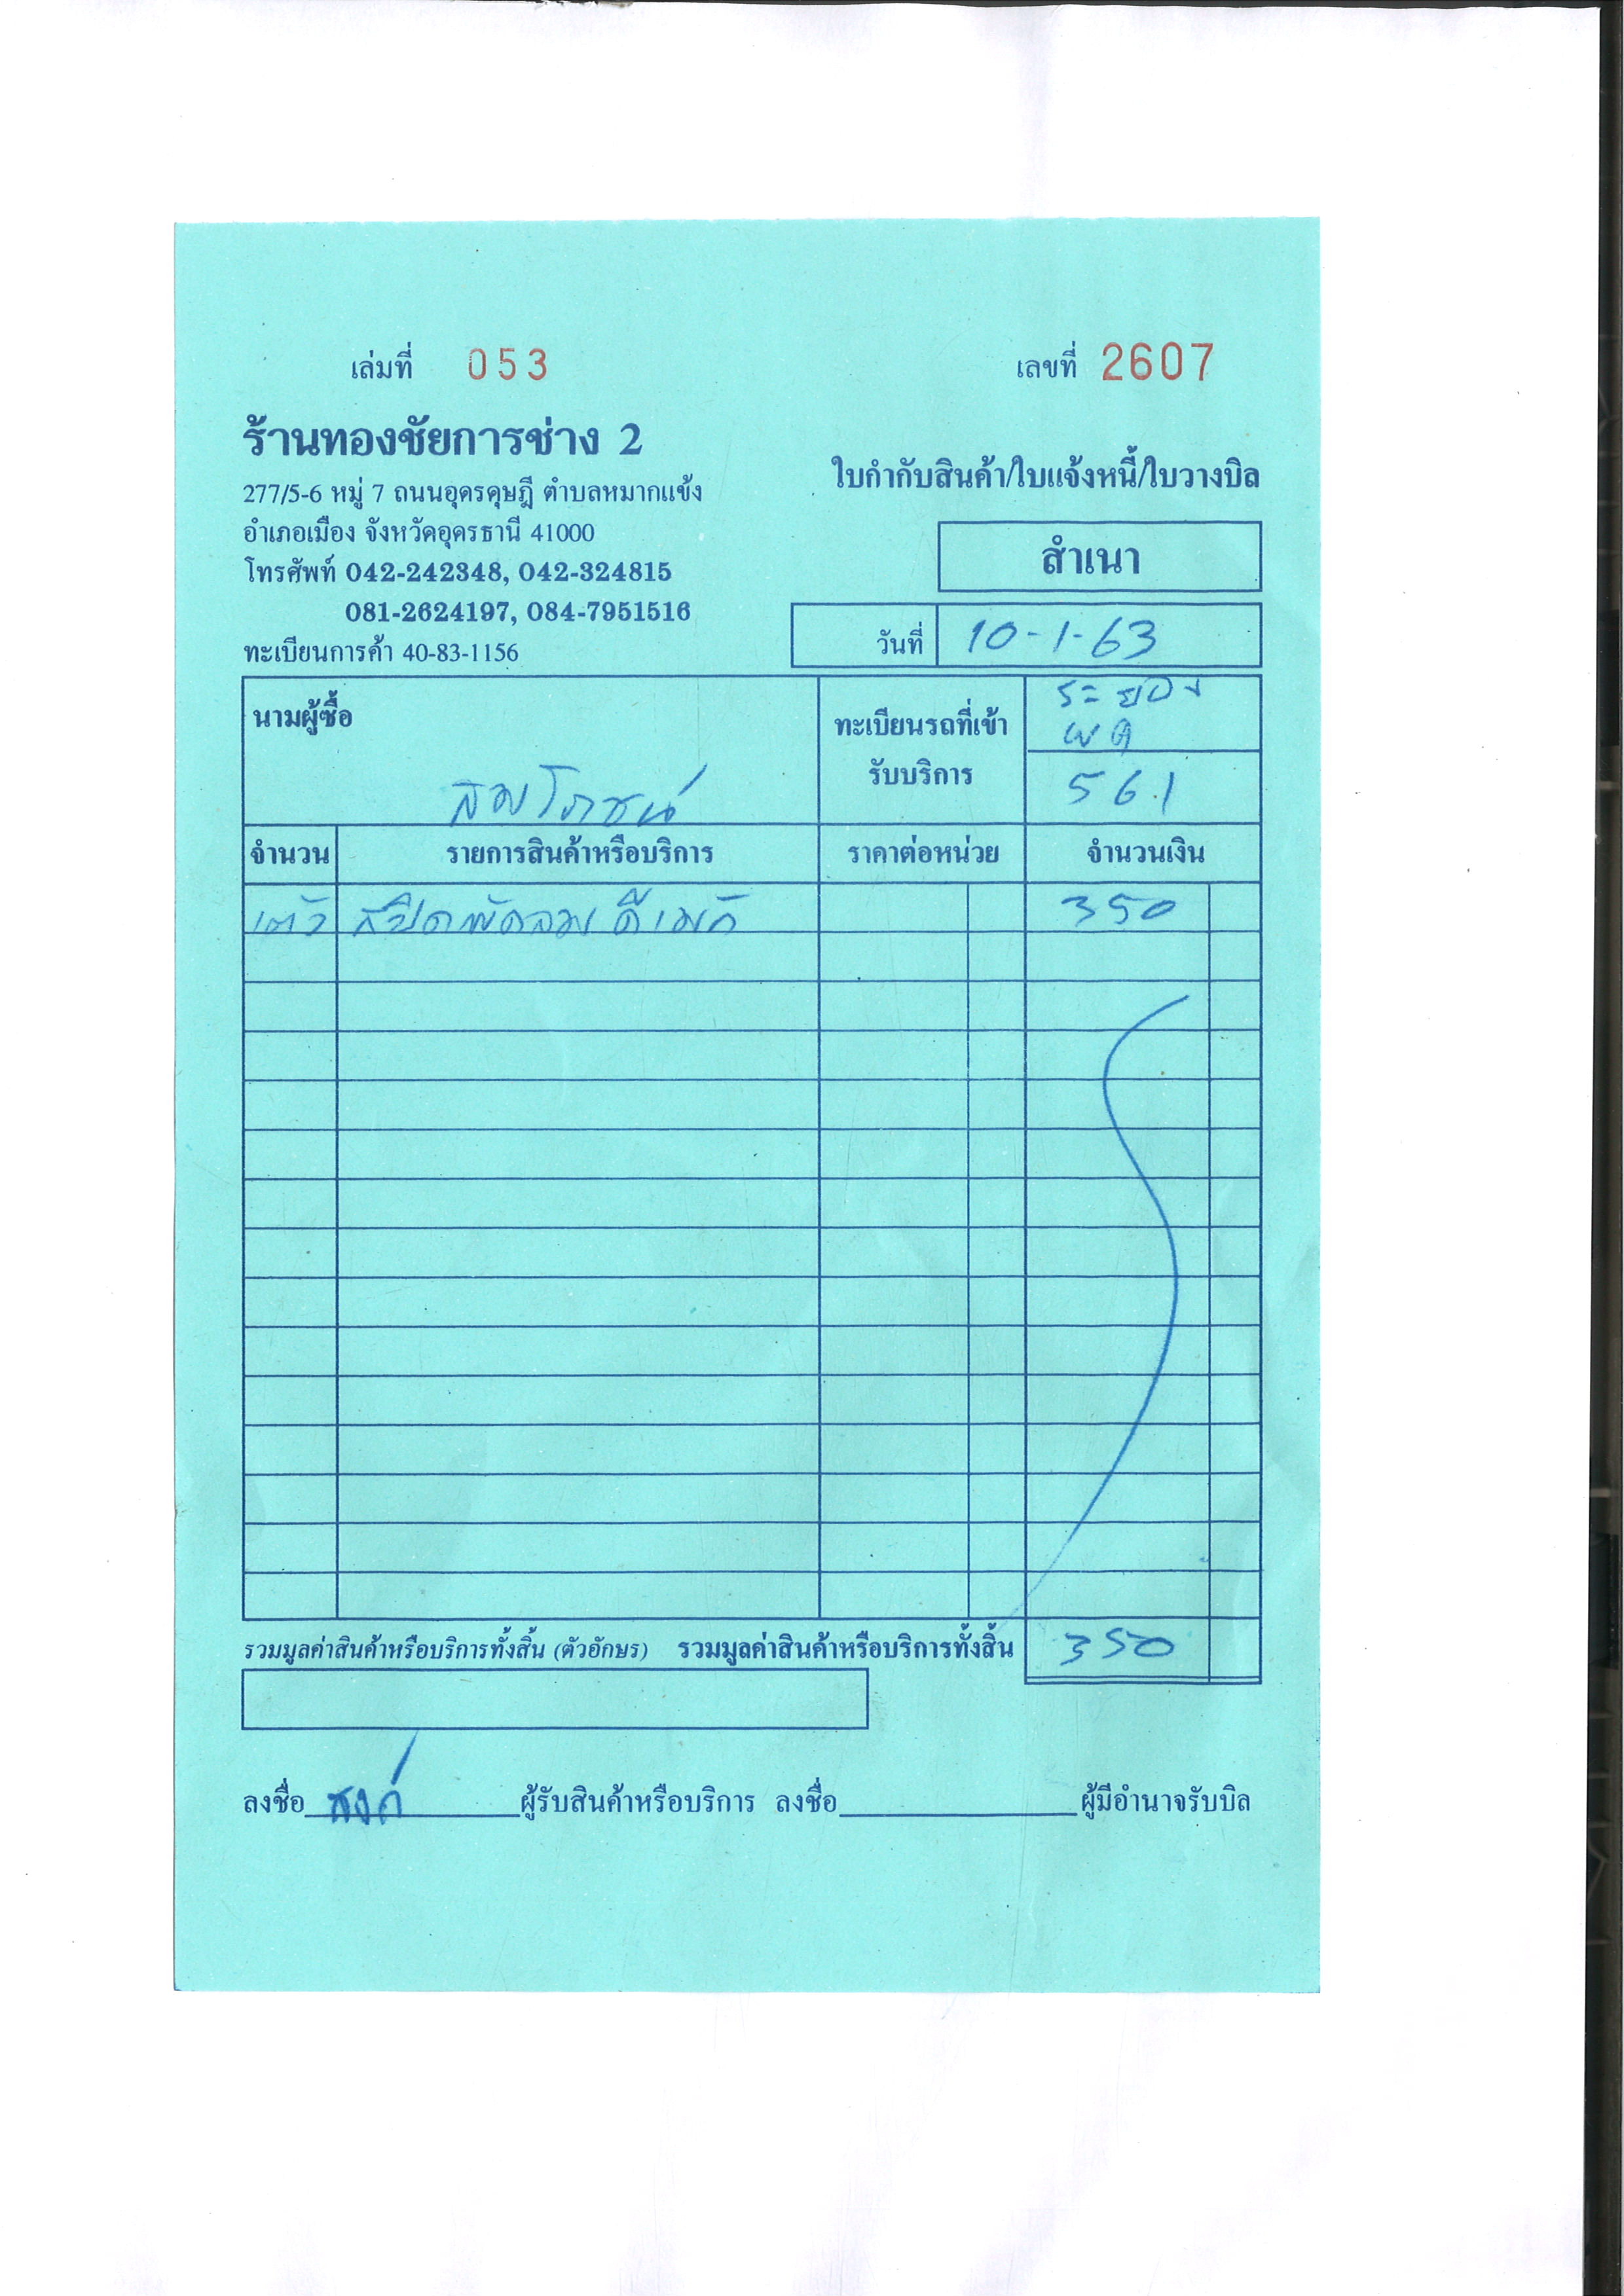 เล่มที่ 053
เลขที่ 2607
ร้านทองชัยการช่าง 2
277/5-6 หมู่ 7 ถนนอุดรดุษฎี ตำบลหมากแข้ง
อำเภอเมือง จังหวัดอุดรธานี 41000
โทรศัพท์ 042-242348, 042-324815
081-2624197, 084-7951516
ทะเบียนการค้า 40-83-1156
ใบกำกับสินค้า/ใบแจ้งหนี้/ใบวางบิล
สำเนา
วันที่ 10-1-63
นามผู้ซื้อ
สมโภชน์
ทะเบียนรถที่เข้า
รับบริการ
ระยอง
ผฉ
561
จำนวน รายการสินค้าหรือบริการ ราคาต่อหน่วย จำนวนเงิน
1 ตัว สปีดพัดลม ดีแม็ก 350
รวมมูลค่าสินค้าหรือบริการทั้งสิ้น (ตัวอักษร) รวมมูลค่าสินค้าหรือบริการทั้งสิ้น 350
ลงชื่อ ผู้รับสินค้าหรือบริการ ลงชื่อ ผู้มีอำนาจรับบิล